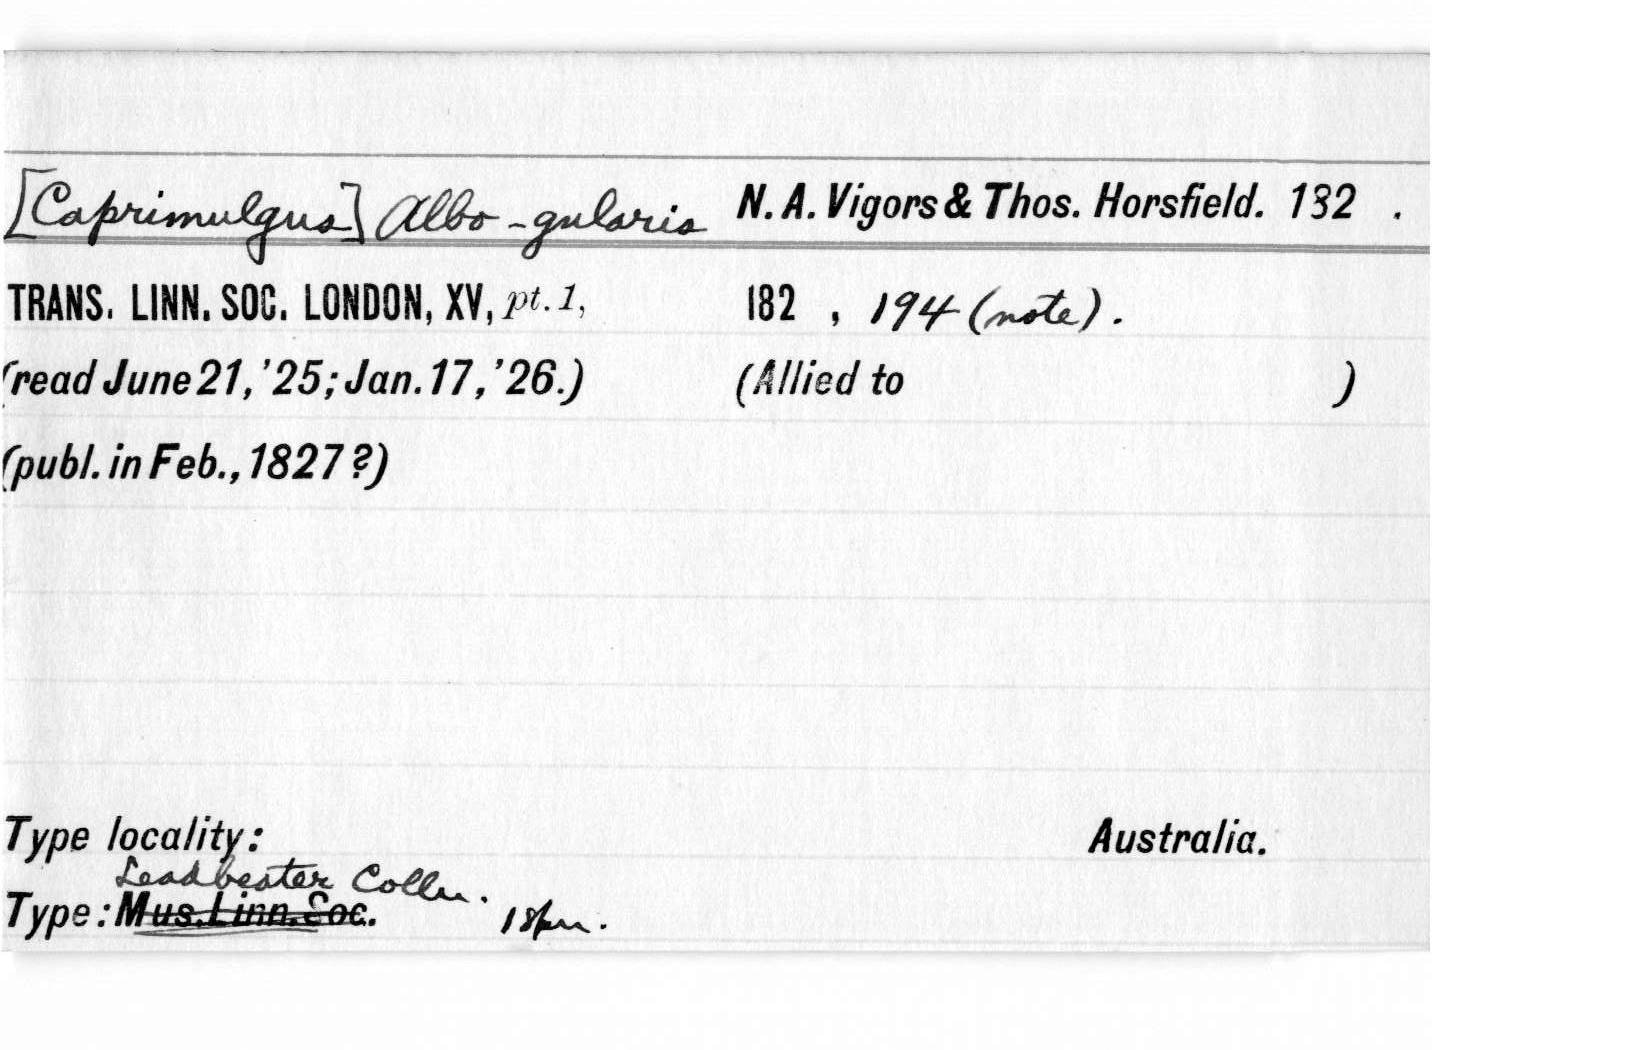 [Caprimulgus] Albo-gularis N. A. Vigors & Thos. Horsfield. 182 .
TRANS. LINN. SOC. LONDON, XV, pt. 1, 182 , 194 (note).
(read June 21, '25; Jan. 17, '26.) (Allied to )
(publ. in Feb., 1827?)
Type locality: Australia.
Leadbeater Colln.
Type: Mus. Linn. Soc. 1 spn.